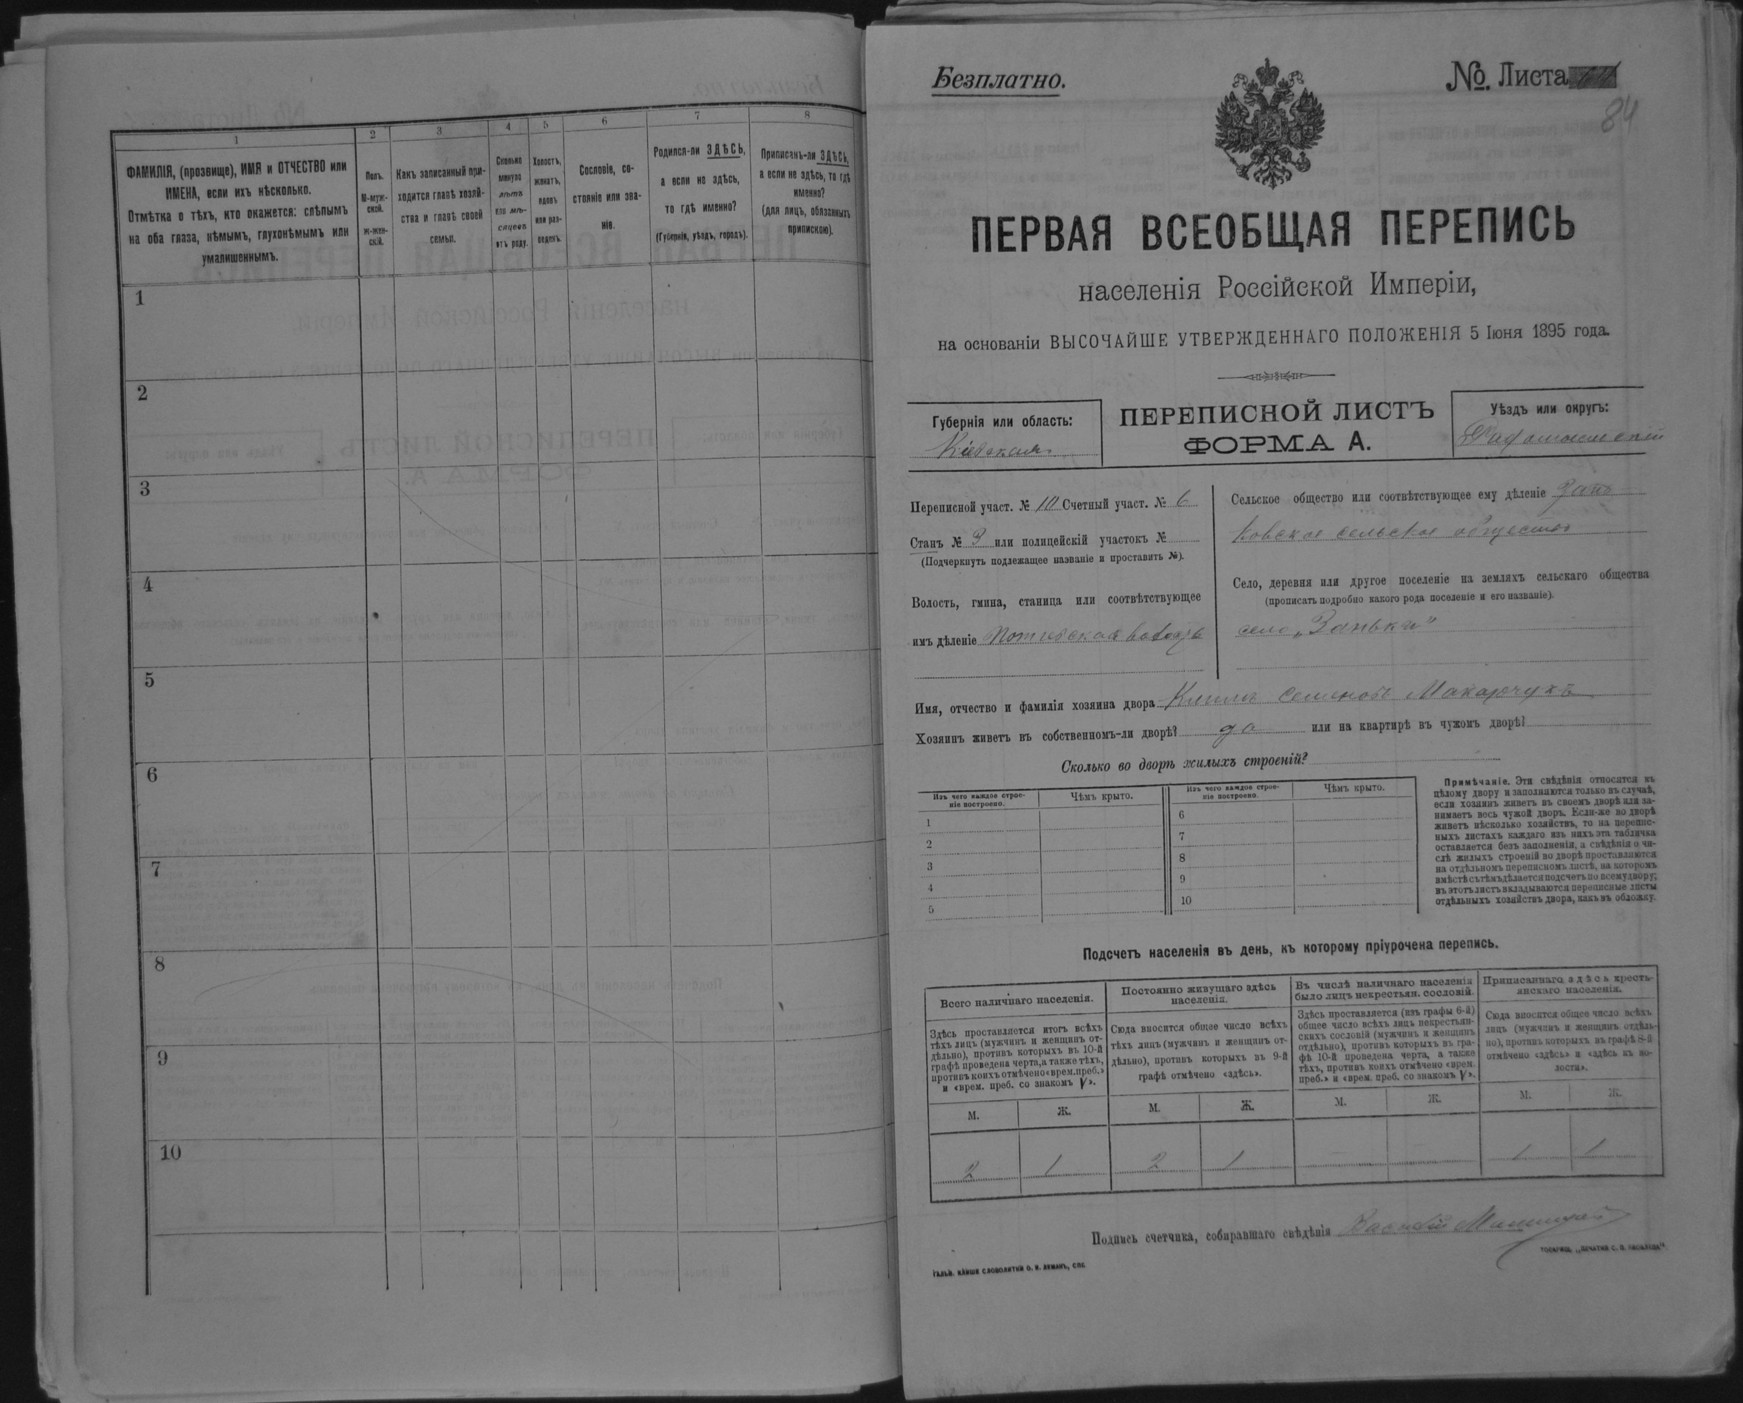 1
2
3
4
5
6
7
8
ФАМИЛІЯ, (прозвище), ИМЯ и ОТЧЕСТВО или
ИМЕНА, если ихъ нѣсколько.
Отмѣтка о тѣхъ, кто окажется: слѣпымъ
на оба глаза, нѣмымъ, глухонѣмымъ или
умалишеннымъ.
Полъ.
М-муж-
ской.
Ж-жен-
скій.
Какъ записанный при-
ходится главѣ хозяй-
ства и главѣ своей
семьи.
Сколько
минуло
лѣтъ
или мѣ-
сяцевъ
отъ роду.
Холостъ,
женатъ,
вдовъ
или раз-
веденъ.
Сословіе, со-
стояніе или зва-
ніе.
Родился-ли ЗДѢСЬ,
а если не здѣсь,
то гдѣ именно?
(Губернія, уѣздъ, городъ).
Приписанъ-ли ЗДѢСЬ,
а если не здѣсь, то гдѣ
именно?
(для лицъ, обязанныхъ
припискою).
1
2
3
4
5
6
7
8
9
10
Безплатно.
№. Листа
84
ПЕРВАЯ ВСЕОБЩАЯ ПЕРЕПИСЬ
населенія Россійской Имперіи,
на основаніи ВЫСОЧАЙШЕ УТВЕРЖДЕННАГО ПОЛОЖЕНІЯ 5 Іюня 1895 года.
Губернія или область:
Кіевская
ПЕРЕПИСНОЙ ЛИСТЪ
ФОРМА А.
Уѣздъ или округъ:
Радомысльскій
Переписной участ. № 10 Счетный участ. № 6
Станъ № 3 или полицейскій участокъ №
(Подчеркнуть подлежащее названіе и проставить №).
Волость, гмина, станица или соотвѣтствующее
имъ дѣленіе Потіевская волость
Сельское общество или соотвѣтствующее ему дѣленіе Зань
ковское сельское общество
Село, деревня или другое поселеніе на земляхъ сельскаго общества
(прописать подробно какого рода поселеніе и его названіе).
село „Заньки"
Имя, отчество и фамилія хозяина двора Климъ Семеновъ Макарчукъ
Хозяинъ живетъ въ собственномъ-ли дворѣ? да или на квартирѣ въ чужомъ дворѣ?
Сколько во дворѣ жилыхъ строеній?
Изъ чего каждое строе-
ніе построено.
Чѣмъ крыто.
Изъ чего каждое строе-
ніе построено.
Чѣмъ крыто.
1
2
3
4
5
6
7
8
9
10
Примѣчаніе. Эти свѣдѣнія относятся къ
цѣлому двору и заполняются только въ случаѣ,
если хозяинъ живетъ въ своемъ дворѣ или за-
нимаетъ весь чужой дворъ. Если-же во дворѣ
живетъ нѣсколько хозяйствъ, то на перепис-
ныхъ листахъ каждаго изъ нихъ эта табличка
оставляется безъ заполненія, а свѣдѣнія о чи-
слѣ жилыхъ строеній во дворѣ проставляются
на отдѣльномъ переписномъ листѣ, на которомъ
вмѣстѣ съ тѣмъ дѣлается подсчетъ по всему двору;
въ этотъ листъ вкладываются переписные листы
отдѣльныхъ хозяйствъ двора, какъ въ обложку.
Подсчетъ населенія въ день, къ которому пріурочена перепись.
Всего наличнаго населенія.
Постоянно живущаго здѣсь
населенія.
Въ числѣ наличнаго населенія
было лицъ некрестьян. сословій.
Приписаннаго здѣсь кресть-
янскаго населенія.
Здѣсь проставляется итогъ всѣхъ
тѣхъ лицъ (мужчинъ и женщинъ от-
дѣльно), противъ которыхъ въ 10-й
графѣ проведена черта, а также тѣхъ,
противъ коихъ отмѣчено «врем. преб.»
и «врем. преб. со знакомъ V».
Сюда вносится общее число всѣхъ
тѣхъ лицъ (мужчинъ и женщинъ от-
дѣльно), противъ которыхъ въ 9-й
графѣ отмѣчено «здѣсь».
Здѣсь проставляется (изъ графы 6-й)
общее число всѣхъ лицъ некрестьян-
скихъ сословій (мужчинъ и женщинъ
отдѣльно), противъ которыхъ въ гра-
фѣ 10-й проведена черта, а также
тѣхъ, противъ коихъ отмѣчено «врем.
преб.» и «врем. преб. со знакомъ V».
Сюда вносится общее число всѣхъ
лицъ (мужчинъ и женщинъ отдѣль-
но), противъ которыхъ въ графѣ 8-й
отмѣчено «здѣсь» и «здѣсь въ во-
лости».
М. Ж. М. Ж. М. Ж. М. Ж.
2 1 2 1 — — 1 1
Подпись счетчика, собиравшаго свѣдѣнія